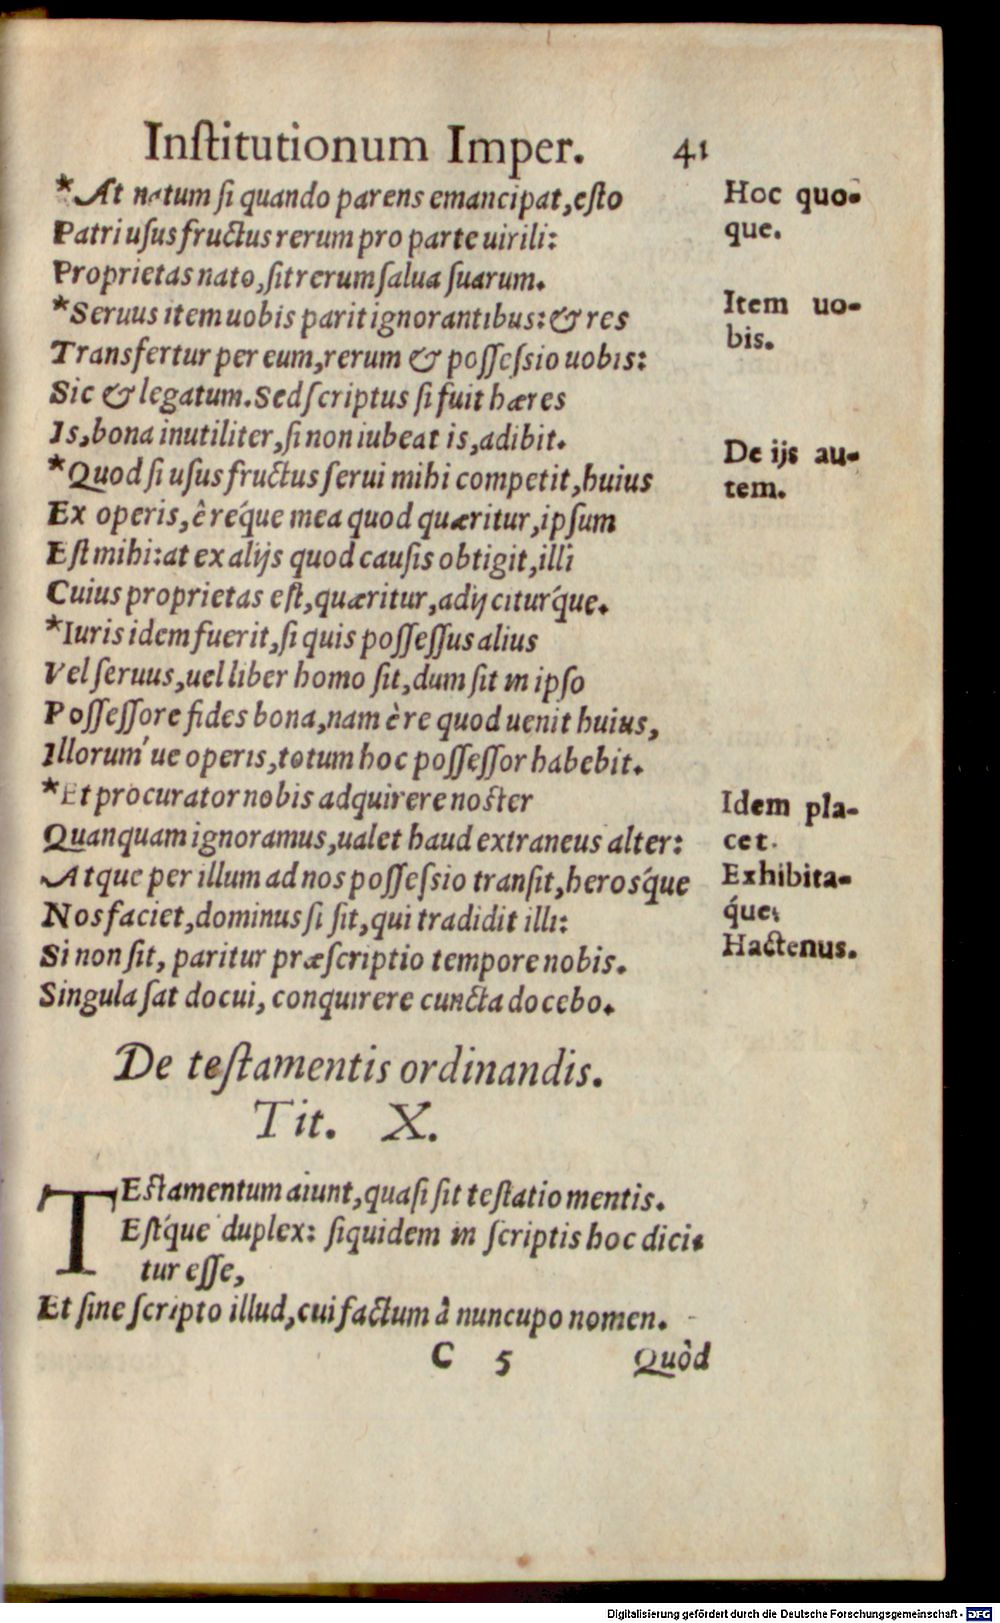 Inſtitutionum Imper. 41
*At natum ſi quando parens emancipat, eſto
Patri uſus fructus rerum pro parte uirili:
Proprietas nato, ſit rerum ſalua ſuarum.
*Seruus item uobis parit ignorantibus: & res
Transfertur per eum, rerum & poſſeſsio uobis:
Sic & legatum. Sed ſcriptus ſi fuit hæres
Is, bona inutiliter, ſi non iubeat is, adibit.
*Quod ſi uſus fructus ſerui mihi competit, huius
Ex operis, è réque mea quod quæritur, ipſum
Eſt mihi: at ex alijs quod cauſis obtigit, illi
Cuius proprietas eſt, quæritur, adijciturq́ue.
*Iuris idem fuerit, ſi quis poſſeſſus alius
Vel ſeruus, uel liber homo ſit, dum ſit in ipſo
Poſſeſſore fides bona, nam è re quod uenit huius,
Illorum'ue operis, totum hoc poſſeſſor habebit.
*Et procurator nobis adquirere noſter
Quanquam ignoramus, ualet haud extraneus alter:
Atque per illum ad nos poſſeſsio tranſit, herosq́ue
Nos faciet, dominus ſi ſit, qui tradidit illi:
Si non ſit, paritur præſcriptio tempore nobis.
Singula ſat docui, conquirere cuncta docebo.
Hoc quo-
que.
Item uo-
bis.
De ijs au-
tem.
Idem pla-
cet.
Exhibita-
q́ue.
Hactenus.
De teſtamentis ordinandis.
Tit. X.
TEſtamentum aiunt, quaſi ſit teſtatio mentis.
Eſtq́ue duplex: ſiquidem in ſcriptis hoc dici-
tur eſſe,
Et ſine ſcripto illud, cui factum à nuncupo nomen.
C 5 Quòd
Digitalisierung gefördert durch die Deutsche Forschungsgemeinschaft - DFG